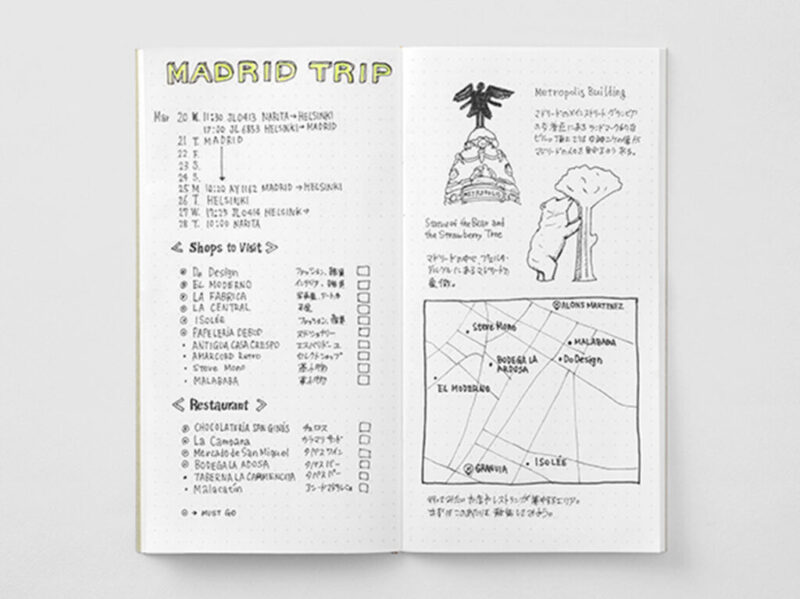 MADRID TRIP
Mar 20 W. 11:30 JL0413 NARITA→HELSINKI
17:00 JL 6853 HELSINKI→MADRID
21 T. MADRID
22 F.
23 S.
24 S.
25 M 10:20 AY1162 MADRID→HELSINKI
26 T. HELSINKI
27 W. 17:25 JL0414 HELSINKI→
28 T. 10:00 NARITA
≪ Shops to Visit ≫
◎ Do Design ファッション、雑貨
◎ EL MODERNO インテリア、雑貨
◎ LA FABRICA
◎ LA CENTRAL 本屋
◎ ISOLÉE ファッション、雑貨
◎ PAPELERÍA DEBOD ステーショナリー
• ANTIGUA CASA CRESPO エスパドリーユ
• AMARCORD Retro セレクトショップ
• Steve Mono 革小物
• MALABABA 革小物
≪ Restaurant ≫
◎ CHOCOLATERÍA SAN GINÉS チュロス
◎ La Campana カラマリサンド
◎ Mercado de San Miguel タパス ワイン
◎ BODEGA LA ADOSA タパス バー
• TABERNA LA CARMENCITA タパス バー
• Malacatín
◎ → MUST GO
Metropolis Building
マドリードのメインストリート グランビア
METROPOLIS
Statue of the Bear and
the Strawberry Tree
マドリードの中心、プエルタ・
デル・ソルにあるマドリードの
象徴。
◎ ALONS MARTINEZ
• Steve Mono
• MALABABA
• BODEGA LA
ARDOSA
• Do Design
• EL MODERNO
• ISOLÉE
◎ GRANVIA